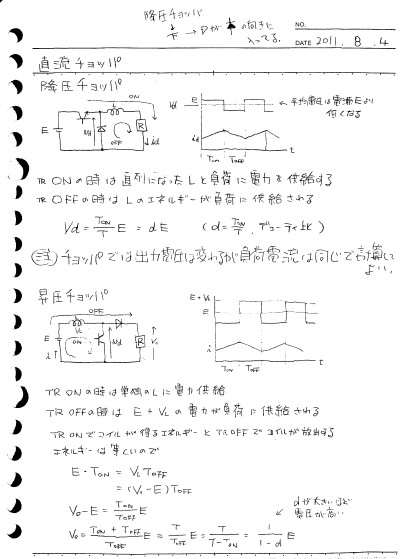 降圧チョッパ
→ Dが の向きに
入ってる.
NO.
DATE 2011. 8. 4
直流チョッパ
降圧チョッパ
ON
L
E
Vd
R
OFF
id
Vd
E
←平均電圧は電源Eより
低くなる
id
TON TOFF t
TR ONの時は直列になったLと負荷に電力を供給する
TR OFFの時はLのエネルギーが負荷に供給される
Vd = TON/T E = dE (d = TON/T, デューティ比)
注) チョッパでは出力電圧は変わるが負荷電流は同じで計算して
よい.
昇圧チョッパ
OFF
L
VL
E
ON
Vd
Vo
R
i
E+VL
E
i
TON TOFF t
TR ONの時は単独のLに電力供給
TR OFFの時は E + VL の電力が負荷に供給される
TR ONでコイルが得るエネルギーとTR OFFでコイルが放出する
エネルギーは等しいので
E・TON = VL TOFF
= (Vo-E) TOFF
Vo-E = TON/TOFF E
dが大きいほど
電圧が高い
Vo = TON + TOFF/TOFF E = T/TOFF E = T/T-TON E = 1/1-d E